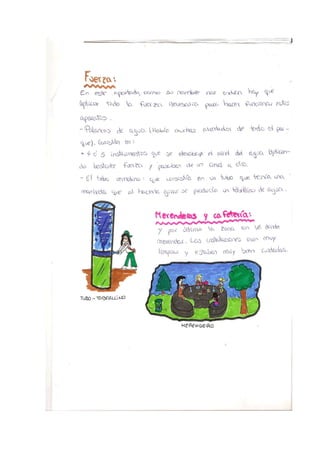 Fuerza:
En este apartado, como su nombre nos indica hay que
aplicar toda la fuerza necesaria para hacer funcionar estos
aparatos.
- Palancas de agua (Había muchas alrededor de todo el par-
que). Consistía en:
4 ó 5 instrumentos que se
bastante fuerza y pasaban de un lado a otro.
- El tubo remolino: que consistía en un tubo que tenía una
manivela que al hacerla girar se producía un torbellino de agua.
Merenderos y cafetería:
Y por última la zona en donde
merendar. Las instalaciones eran muy
limpias y estaban muy bien cuidadas.
TUBO-TORBELLINO
MERENDERO